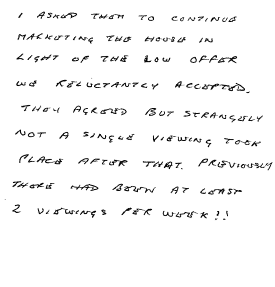 I ASKED THEM TO CONTINUE
MARKETING THE HOUSE IN
LIGHT OF THE LOW OFFER
WE RELUCTANTLY ACCEPTED.
THEY AGREED BUT STRANGELY
NOT A SINGLE VIEWING TOOK
PLACE AFTER THAT. PREVIOUSLY
THERE HAD BEEN AT LEAST
2 VIEWINGS PER WEEK!!